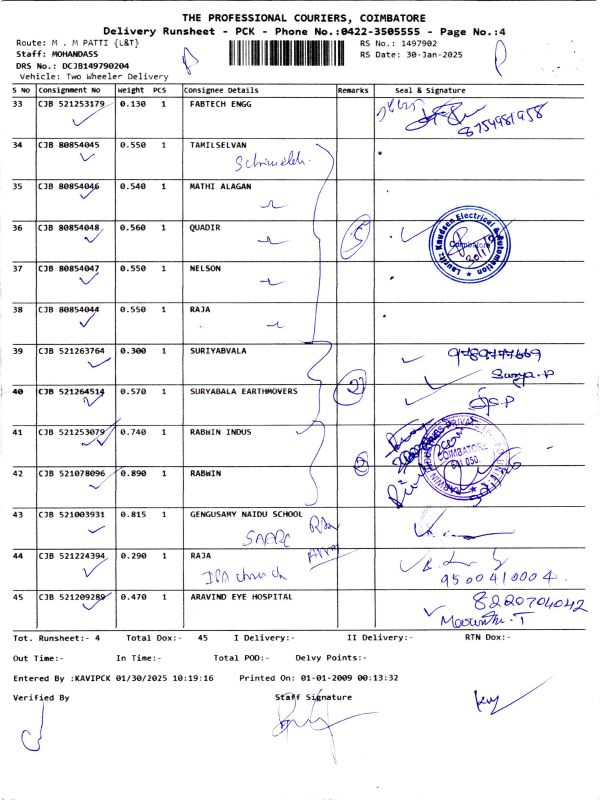 THE PROFESSIONAL COURIERS, COIMBATORE
Delivery Runsheet - PCK - Phone No.:0422-3505555 - Page No.:4
Route: M . M PATTI {L&T}
RS No.: 1497902
Staff: MOHANDASS
RS Date: 30-Jan-2025
DRS No.: DCJB149790204
Vehicle: Two Wheeler Delivery
S No Consignment No Weight PCS Consignee Details Remarks Seal & Signature
33 CJB 521253179 0.130 1 FABTECH ENGG
8754981958
34 CJB 80854045 0.550 1 TAMILSELVAN
35 CJB 80854046 0.540 1 MATHI ALAGAN
36 CJB 80854048 0.560 1 QUADIR 5
Lauritz Knudsen Electrical & Automation
Coimbatore
37 CJB 80854047 0.550 1 NELSON
38 CJB 80854044 0.550 1 RAJA
39 CJB 521263764 0.300 1 SURIYABVALA
9789777669
Surya.P
40 CJB 521264514 0.570 1 SURYABALA EARTHMOVERS 2
41 CJB 521253079 0.740 1 RABWIN INDUS
COIMBATORE
42 CJB 521078096 0.890 1 RABWIN 2
43 CJB 521003931 0.815 1 GENGUSAMY NAIDU SCHOOL
44 CJB 521224394 0.290 1 RAJA
9500410004.
45 CJB 521209289 0.470 1 ARAVIND EYE HOSPITAL
8220704042
Tot. Runsheet:- 4 Total Dox:- 45 I Delivery:- II Delivery:- RTN Dox:-
Out Time:- In Time:- Total POD:- Delvy Points:-
Entered By :KAVIPCK 01/30/2025 10:19:16 Printed On: 01-01-2009 00:13:32
Verified By Staff Signature